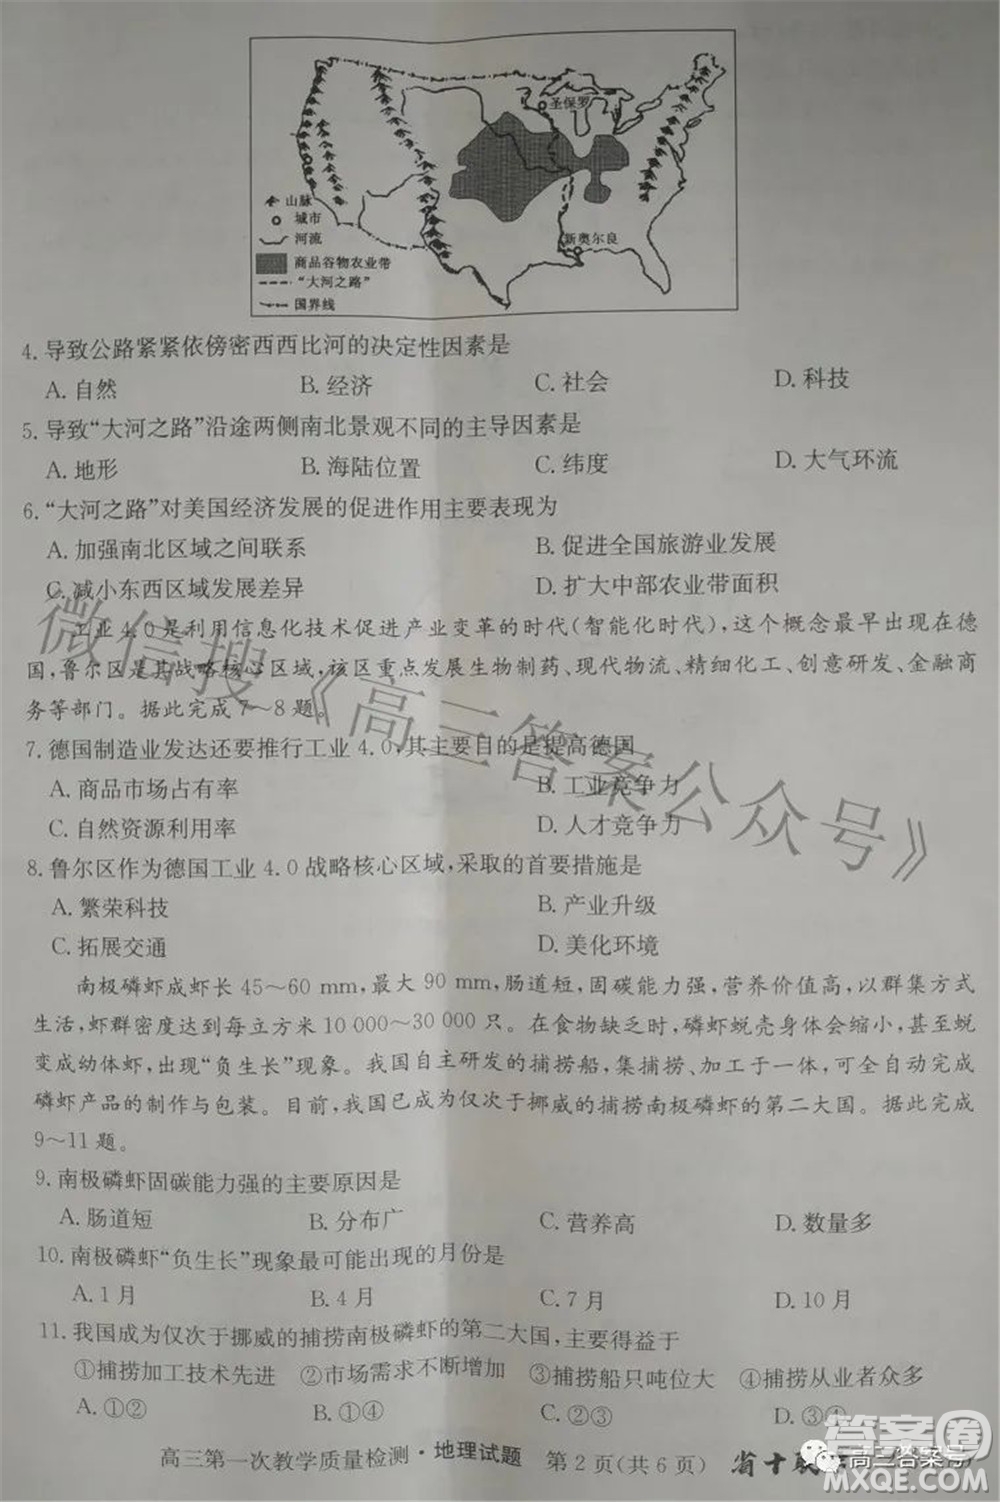 圣保罗
新奥尔良
山脉
城市
河流
商品谷物农业带
"大河之路"
国界线
4.导致公路紧紧依傍密西西比河的决定性因素是
A.自然 B.经济 C.社会 D.科技
5.导致"大河之路"沿途两侧南北景观不同的主导因素是
A.地形 B.海陆位置 C.纬度 D.大气环流
6."大河之路"对美国经济发展的促进作用主要表现为
A.加强南北区域之间联系 B.促进全国旅游业发展
C.减小东西区域发展差异 D.扩大中部农业带面积
工业4.0是利用信息化技术促进产业变革的时代(智能化时代),这个概念最早出现在德
国,鲁尔区是其战略核心区域,该区重点发展生物制药、现代物流、精细化工、创意研发、金融商
务等部门。据此完成7~8题。
7.德国制造业发达还要推行工业4.0,其主要目的是提高德国
A.商品市场占有率 B.工业竞争力
C.自然资源利用率 D.人才竞争力
8.鲁尔区作为德国工业4.0战略核心区域,采取的首要措施是
A.繁荣科技 B.产业升级
C.拓展交通 D.美化环境
南极磷虾成虾长45~60 mm,最大90 mm,肠道短,固碳能力强,营养价值高,以群集方式
生活,虾群密度达到每立方米10 000~30 000只。在食物缺乏时,磷虾蜕壳身体会缩小,甚至蜕
变成幼体虾,出现"负生长"现象。我国自主研发的捕捞船,集捕捞、加工于一体,可全自动完成
磷虾产品的制作与包装。目前,我国已成为仅次于挪威的捕捞南极磷虾的第二大国。据此完成
9~11题。
9.南极磷虾固碳能力强的主要原因是
A.肠道短 B.分布广 C.营养高 D.数量多
10.南极磷虾"负生长"现象最可能出现的月份是
A.1月 B.4月 C.7月 D.10月
11.我国成为仅次于挪威的捕捞南极磷虾的第二大国,主要得益于
①捕捞加工技术先进 ②市场需求不断增加 ③捕捞船只吨位大 ④捕捞从业者众多
A.①② B.①④ C.②③ D.③④
高三第一次教学质量检测·地理试题 第2页(共6页) 省十联
微信搜《高三答案公众号》
高三答案号
答案圈
MXQE.COM